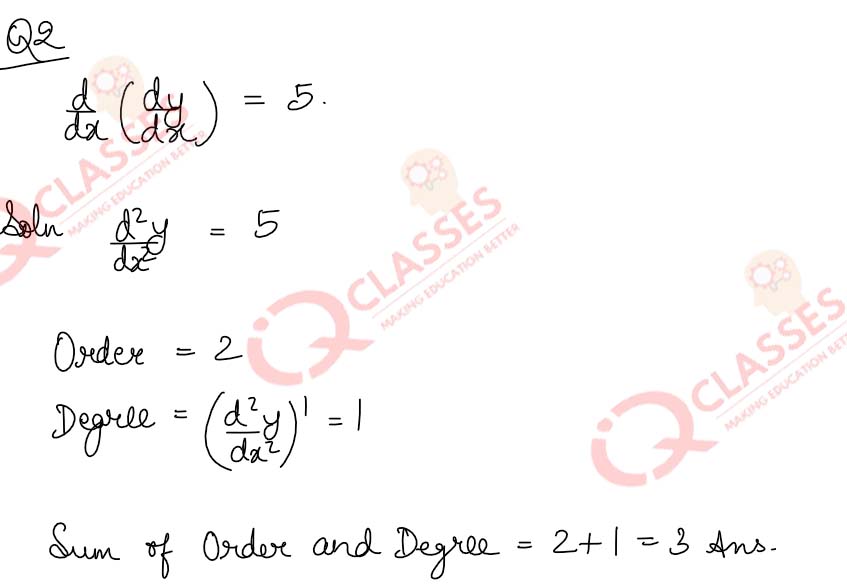 Q2
d/dx (dy/dx) = 5.
Soln d²y/dx² = 5
Order = 2
Degree = (d²y/dx²)¹ = 1
Sum of Order and Degree = 2+1 = 3 Ans.
iQ CLASSES
MAKING EDUCATION BETTER
iQ CLASSES
MAKING EDUCATION BETTER
iQ CLASSES
MAKING EDUCATION BETTER